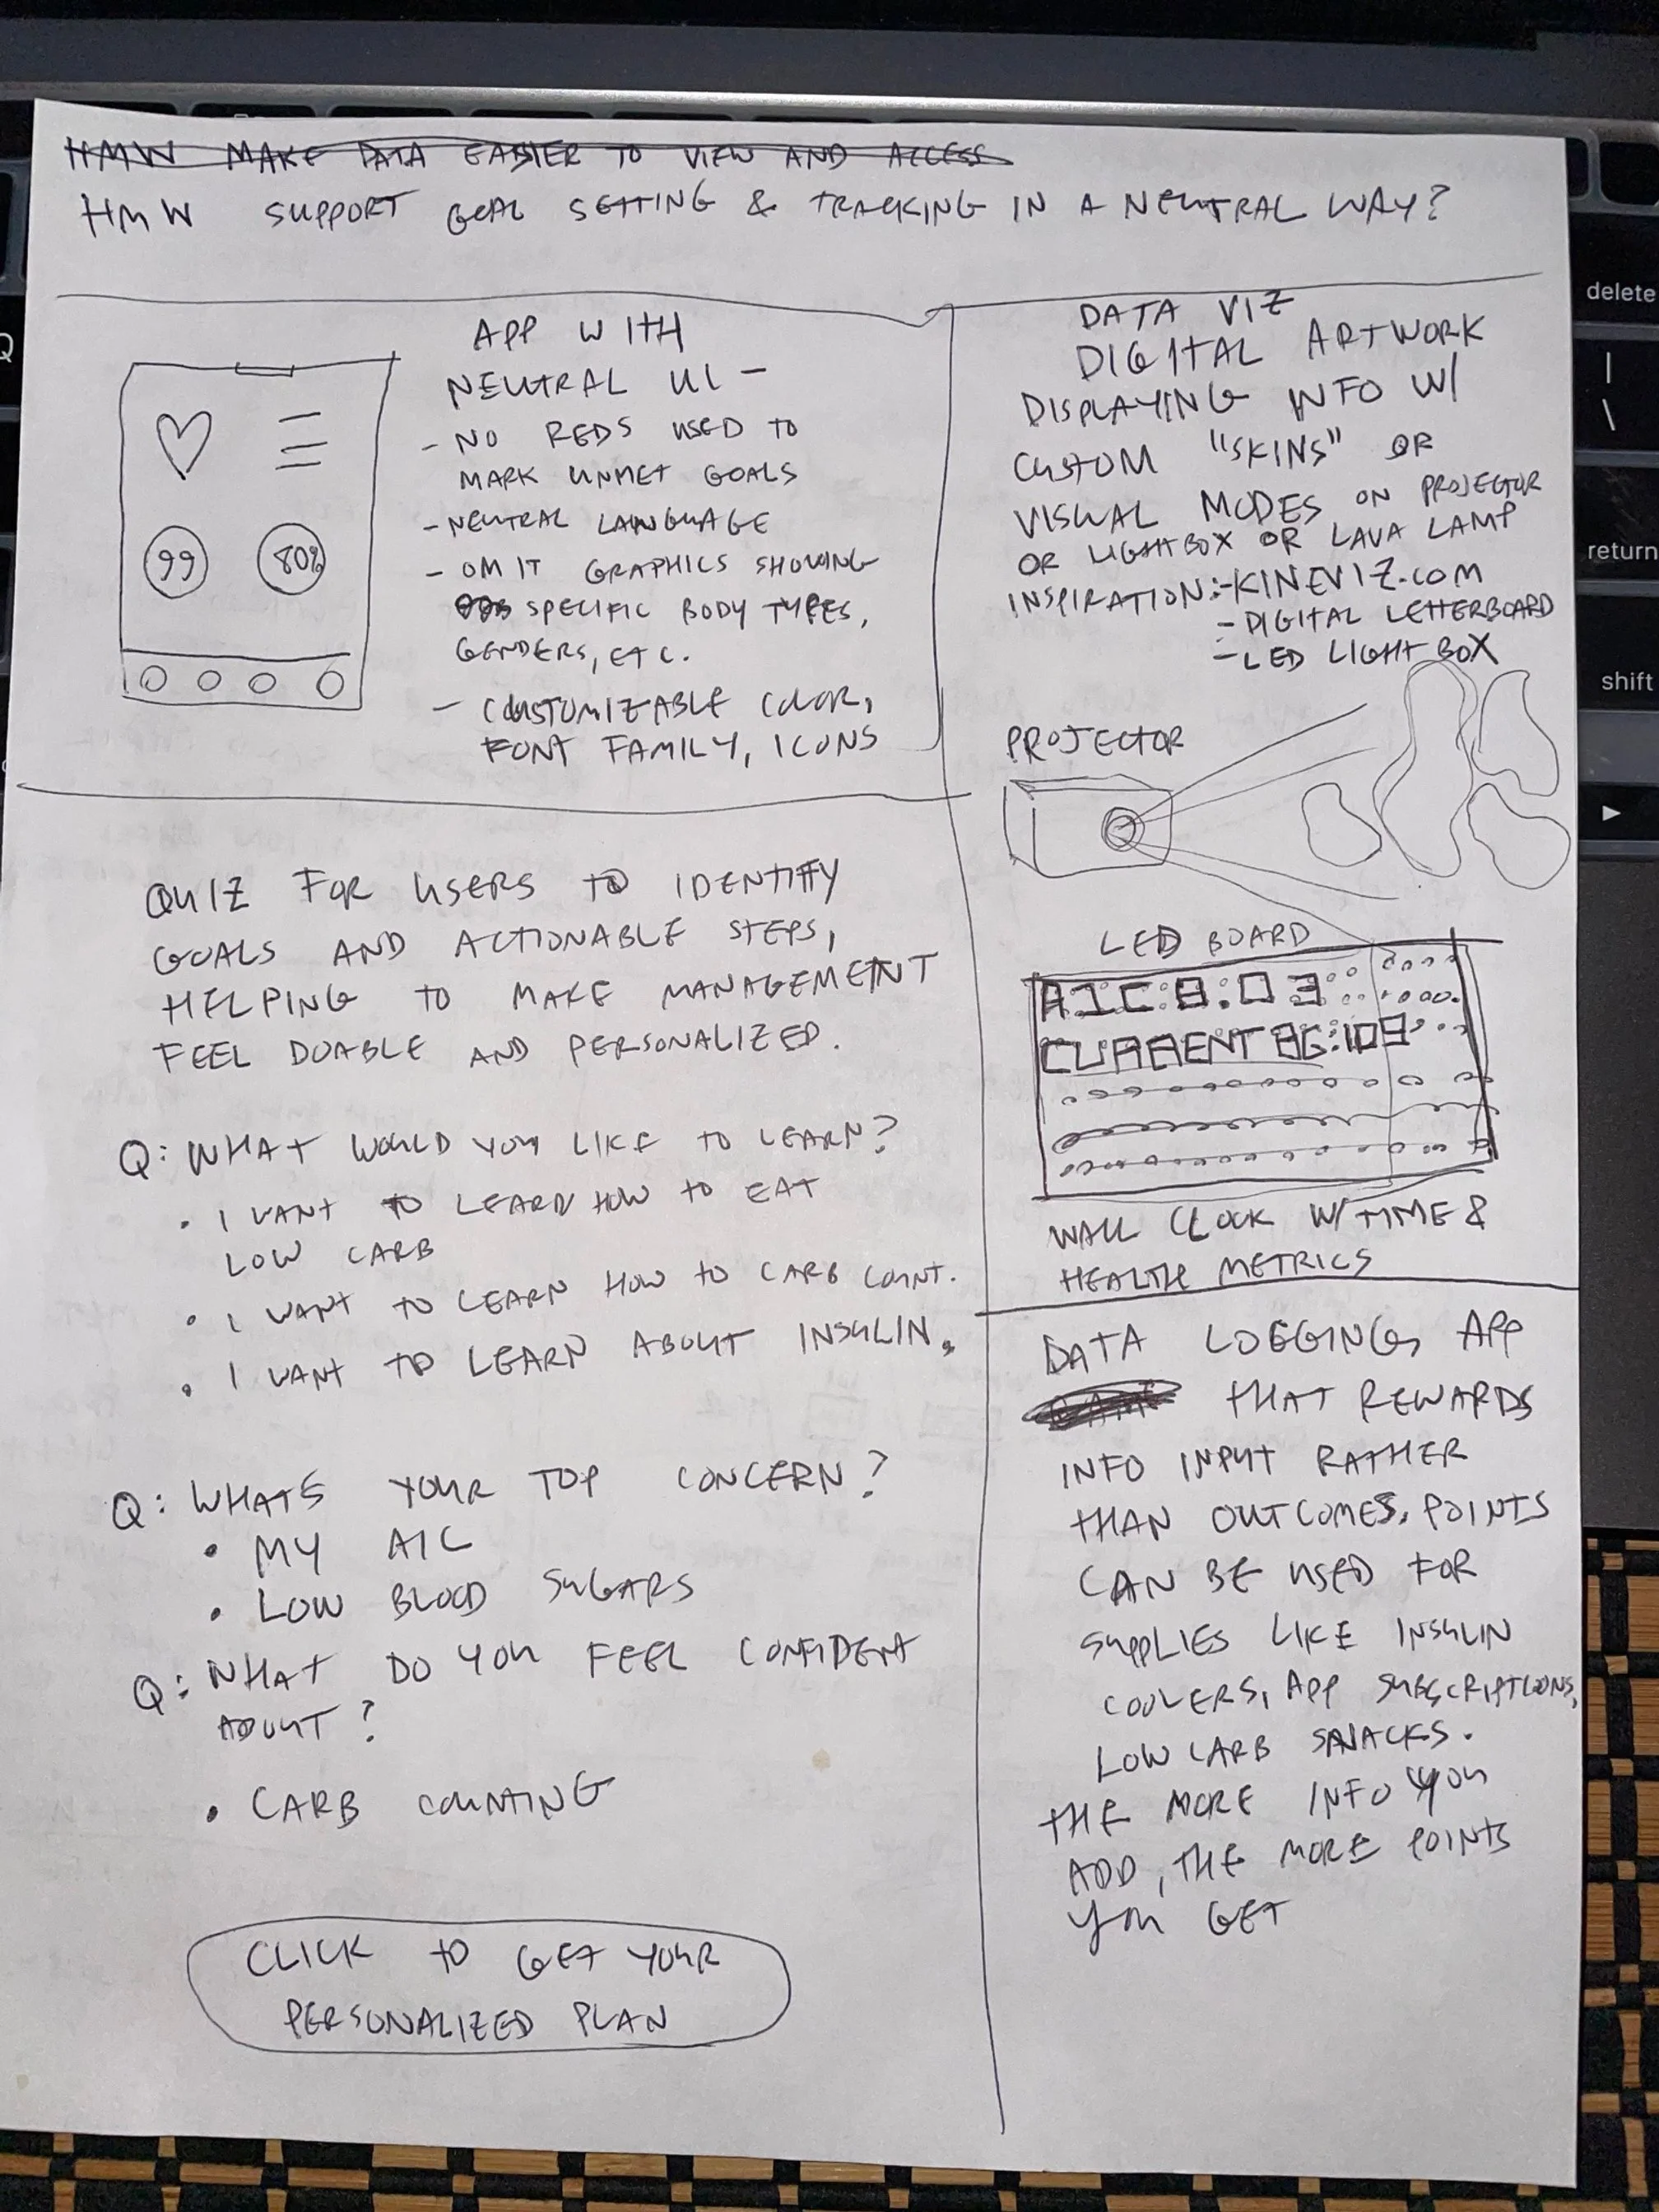 HMW MAKE DATA EASIER TO VIEW AND ACCESS
HMW SUPPORT GOAL SETTING & TRACKING IN A NEUTRAL WAY?
APP WITH
NEUTRAL UI -
- NO REDS USED TO
MARK UNMET GOALS
- NEUTRAL LANGUAGE
- OMIT GRAPHICS SHOWING
SPECIFIC BODY TYPES,
GENDERS, ETC.
- CUSTOMIZABLE COLOR,
FONT FAMILY, ICONS
99
80%
DATA VIZ
DIGITAL ARTWORK
DISPLAYING INFO W/
CUSTOM "SKINS" OR
VISUAL MODES ON PROJECTOR
OR LIGHTBOX OR LAVA LAMP
INSPIRATION: - KINEVIZ.COM
- DIGITAL LETTERBOARD
- LED LIGHT BOX
PROJECTOR
LED BOARD
A1C: 8.03
CURRENT BG: 109
WALL CLOCK W/ TIME &
HEALTH METRICS
QUIZ FOR USERS TO IDENTIFY
GOALS AND ACTIONABLE STEPS,
HELPING TO MAKE MANAGEMENT
FEEL DOABLE AND PERSONALIZED.
Q: WHAT WOULD YOU LIKE TO LEARN?
• I WANT TO LEARN HOW TO EAT
LOW CARB
• I WANT TO LEARN HOW TO CARB COUNT.
• I WANT TO LEARN ABOUT INSULIN.
Q: WHATS YOUR TOP CONCERN?
• MY A1C
• LOW BLOOD SUGARS
Q: WHAT DO YOU FEEL CONFIDENT
ABOUT?
• CARB COUNTING
CLICK TO GET YOUR
PERSONALIZED PLAN
DATA LOGGING APP
THAT REWARDS
INFO INPUT RATHER
THAN OUTCOMES. POINTS
CAN BE USED FOR
SUPPLIES LIKE INSULIN
COOLERS, APP SUBSCRIPTIONS,
LOW CARB SNACKS.
THE MORE INFO YOU
ADD, THE MORE POINTS
YOU GET
Q
delete
|
\
return
shift